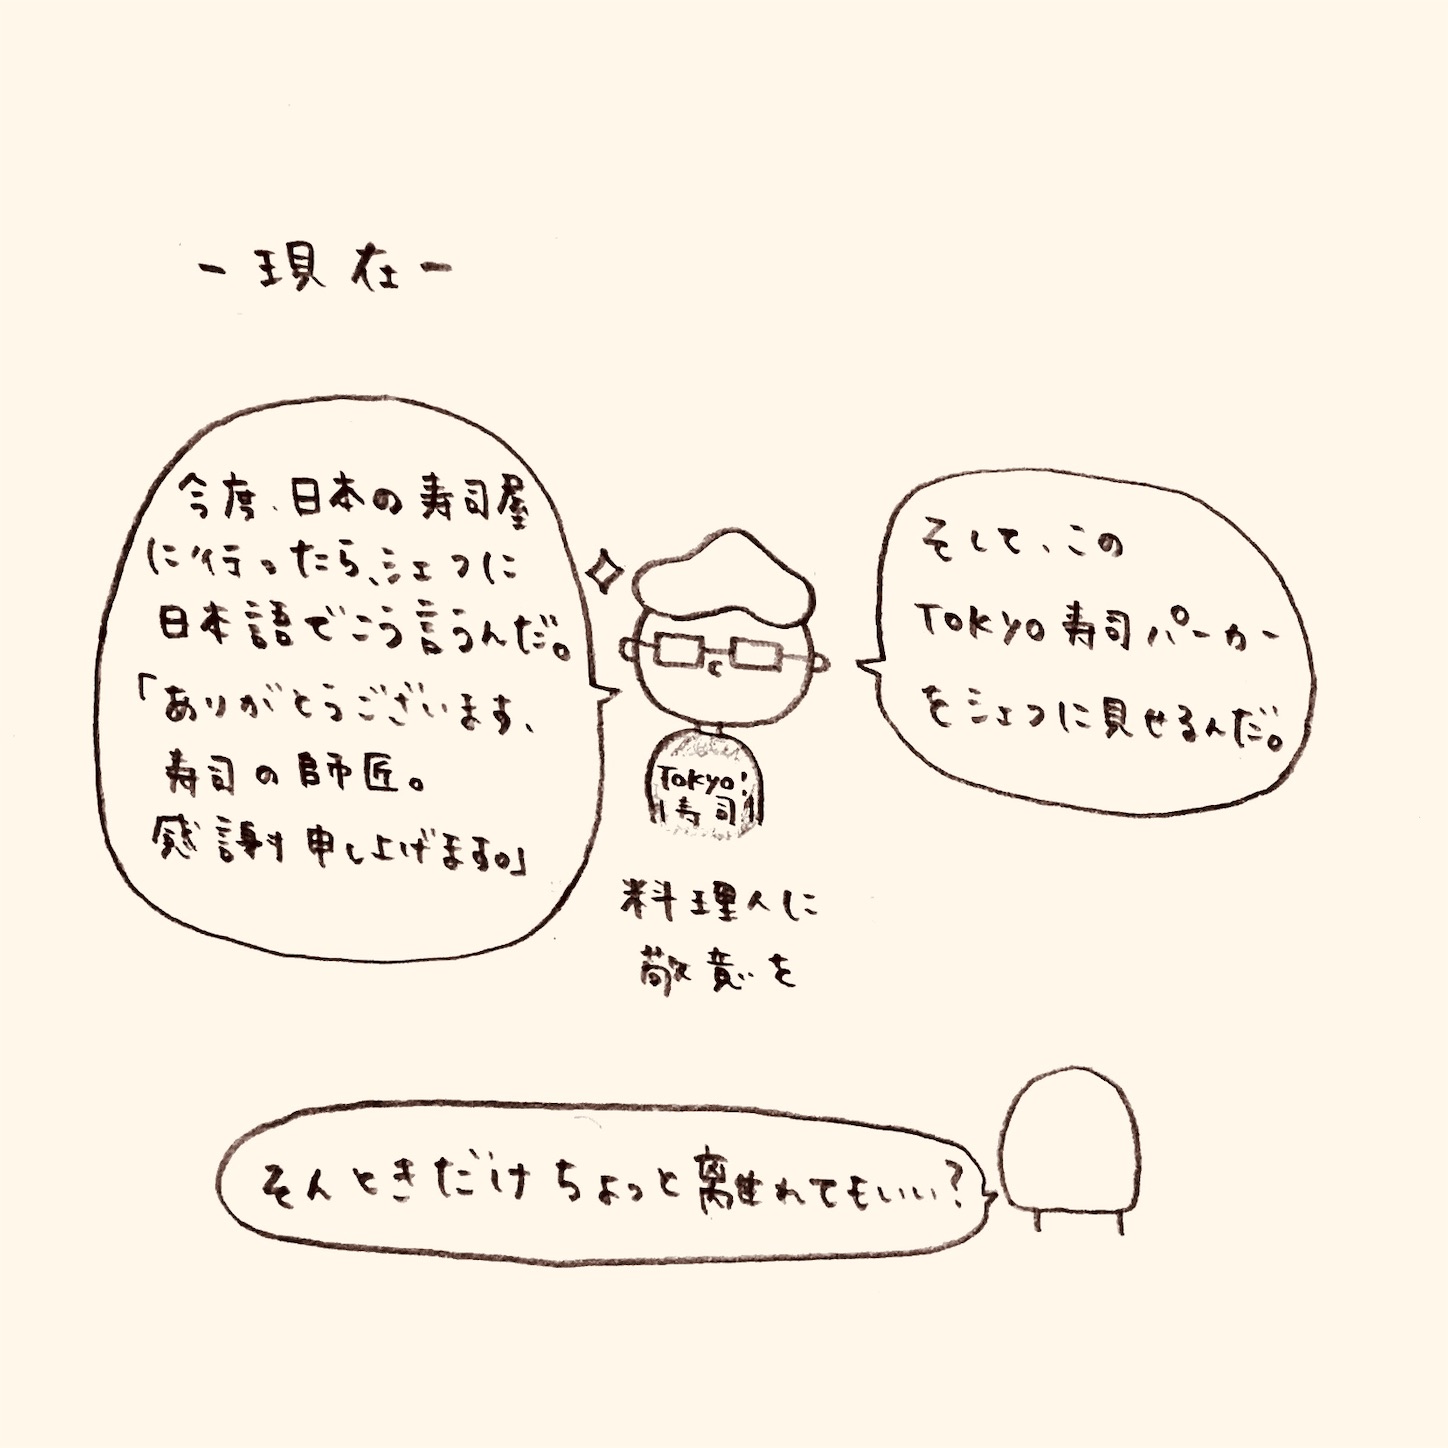 -現在-
今度、日本の寿司屋
に行ったら、シェフに
日本語でこう言うんだ。
「ありがとうございます、
寿司の師匠。
感謝申し上げます。」
そして、この
TOKYO寿司パーカー
をシェフに見せるんだ。
TOKYO!
寿司
料理人に
敬意を
そんときだけちょっと離れてもいい?